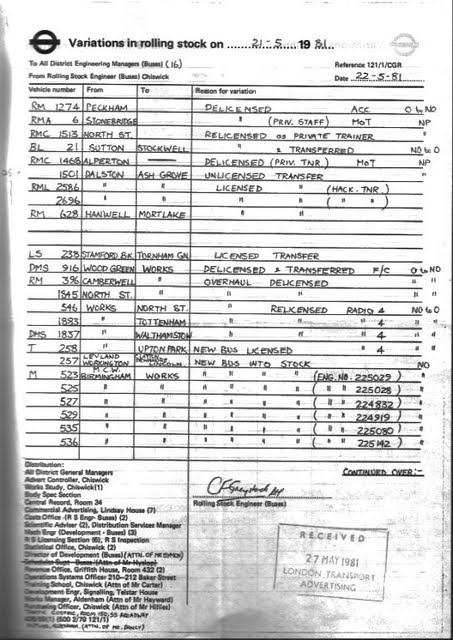 Variations in rolling stock on 21-5 1981
To All District Engineering Managers (Buses) (16) Reference 121/1/CGR
From Rolling Stock Engineer (Buses) Chiswick Date 22-5-81
Vehicle number From To Reason for variation
RM 1274 PECKHAM DELICENSED ACC O to NO
RMA 6 STONEBRIDGE " (PRIV. STAFF) MoT NP
RMC 1513 NORTH ST. RELICENSED as PRIVATE TRAINER "
BL 21 SUTTON STOCKWELL " & TRANSFERRED NO to O
RMC 1468 ALPERTON — DELICENSED (PRIV. TNR.) MoT NP
1501 DALSTON ASH GROVE UNLICENSED TRANSFER "
RML 2586 " " LICENSED " (HACK. TNR.)
2696 " " " " ( " " )
RM 628 HANWELL MORTLAKE " "
LS 238 STAMFORD BK. TURNHAM GN. LICENSED TRANSFER
DMS 916 WOOD GREEN WORKS DELICENSED & TRANSFERRED F/C O to NO
RM 396 CAMBERWELL OVERHAUL DELICENSED " "
1845 NORTH ST. " " " "
546 WORKS NORTH ST. " RELICENSED RADIO 4 NO to O
1883 " TOTTENHAM " " " 4 "
DMS 1837 " WALTHAMSTOW " " " 4 "
T 258 " UPTON PARK NEW BUS LICENSED " 4 "
257 LEYLAND WORKINGTON LINCOLN NEW BUS INTO STOCK NO
M 523 M.C.W. BIRMINGHAM WORKS " " " " (ENG. NO. 225029) "
525 " " " " " " ( " " 225028) "
527 " " " " " " ( " " 224832) "
529 " " " " " " ( " " 224919) "
535 " " " " " " ( " " 225080) "
536 " " " " " " ( " " 225142) "
Distribution: CONTINUED OVER:-
All District General Managers
Advert Controller, Chiswick
Works Study, Chiswick(1)
Body Spec Section
Central Record, Room 34
Rolling Stock Engineer (Buses)
Commercial Advertising, Lindsay House (7)
Costs Office (R S Engr- Buses) (2)
Scientific Adviser (2), Distribution Services Manager
Mech Engr (Development - Buses) (3)
R S Licensing Section (6), R S Inspection
Statistical Office, Chiswick (2)
Director of Development (Buses)
Schedules Supt - Buses (Attn of Mr Hyslop)
Revenue Office, Griffith House, Room 432 (2)
Operations Systems Officer 210-212 Baker Street
Training School, Chiswick (Attn of Mr Carter)
Development Engr, Signalling, Telstar House
Works Manager, Aldenham (Attn of Mr Hayward)
Purchasing Officer, Chiswick (Attn of Mr Hillies)
RECEIVED
27 MAY 1981
LONDON TRANSPORT
ADVERTISING